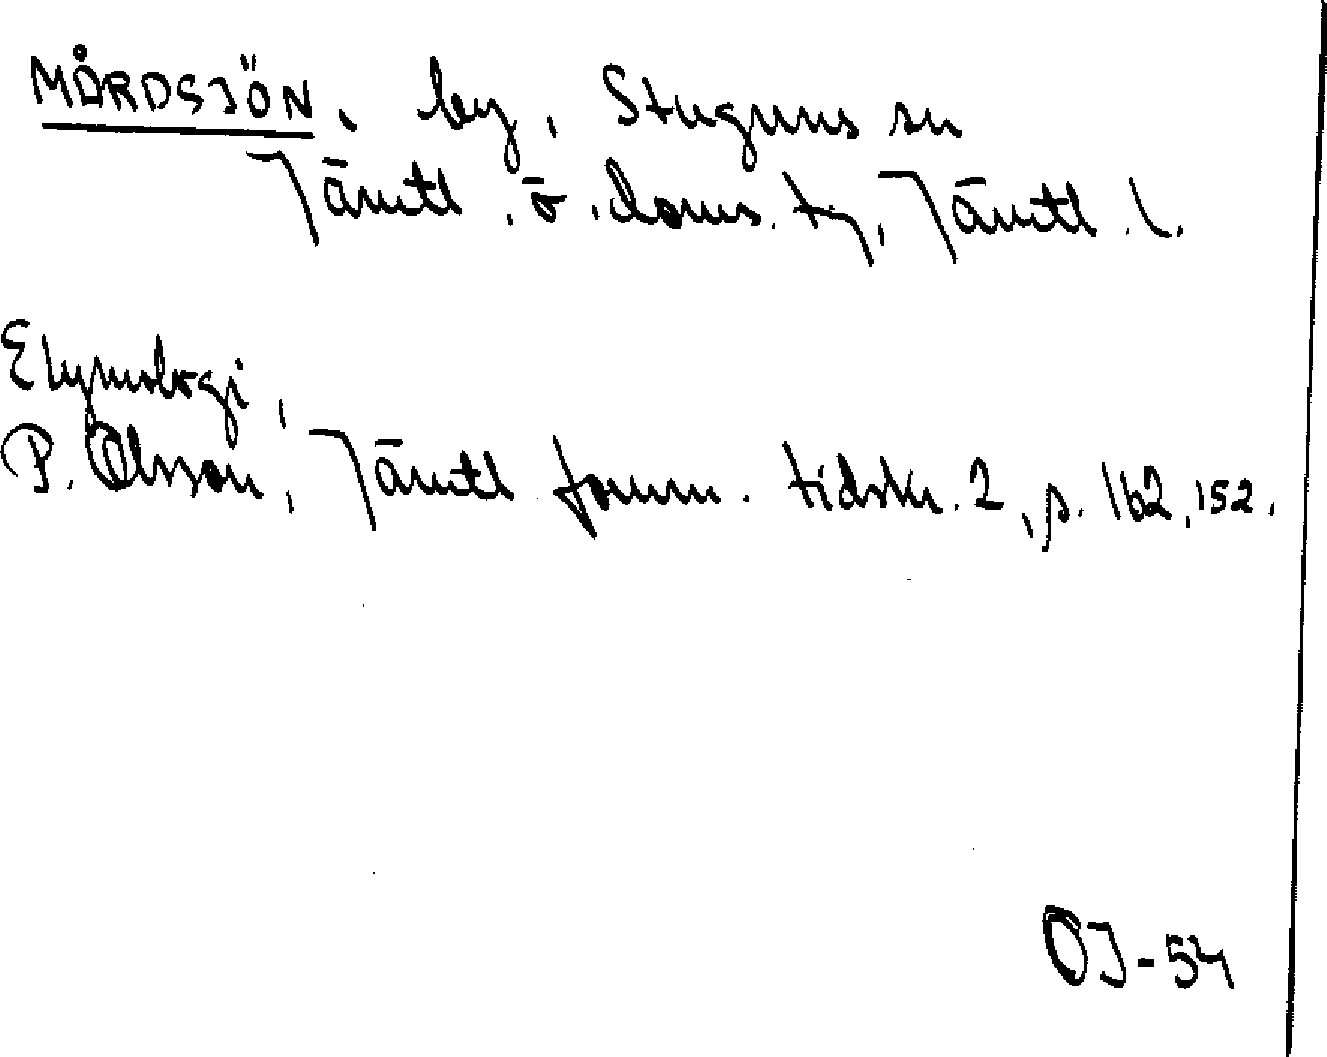 MÅRDSJÖN, by, Stuguns sn
Jämtl. ö. doms. tg, Jämtl. l.
Etymologi,
P. Olsson, Jämtl fornm. tidskr. 2, s. 162, 152.
OJ-54